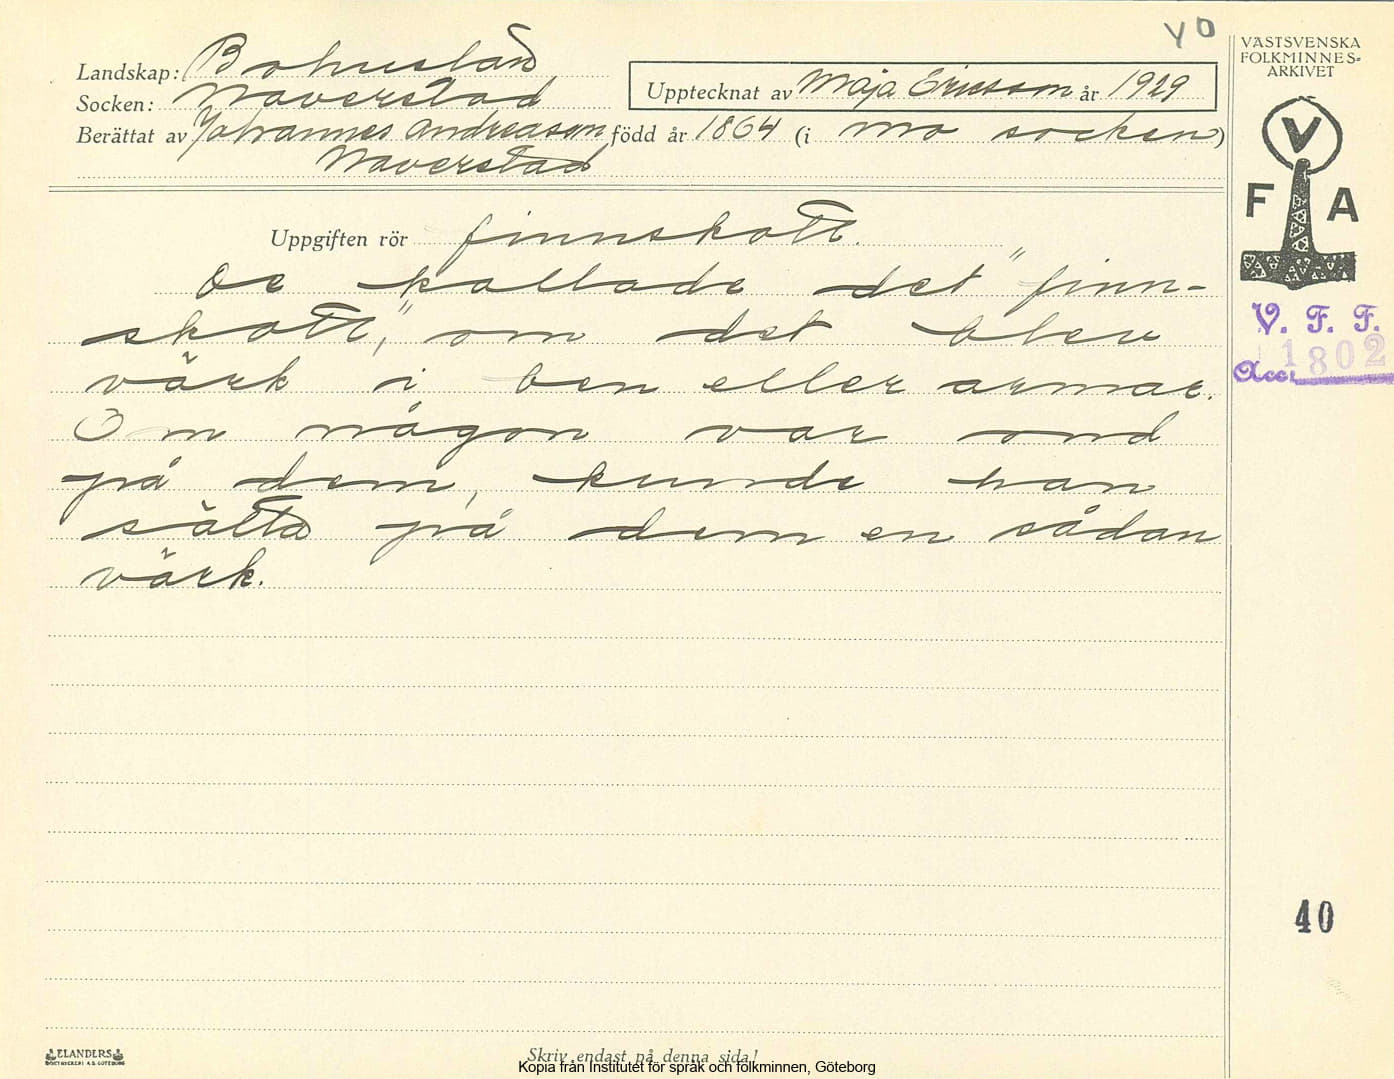 YO
Landskap: Bohuslän
Socken: Naverstad
Berättat av Johannes Andreasson
Naverstad
Upptecknat av Maja Ericsson år 1929
född år 1864 (i Mo socken)
Uppgiften rör finnskott.
De kallade det "finn-
skott", om det blev
värk i ben eller armar.
Om någon var ond
på dem, kunde han
sätta på dem en sådan
värk.
VÄSTSVENSKA
FOLKMINNES-
ARKIVET
V
F A
V. F. F.
Acc. 1802
40
ELANDERS
Skriv endast på denna sida!
Kopia från Institutet för språk och folkminnen, Göteborg